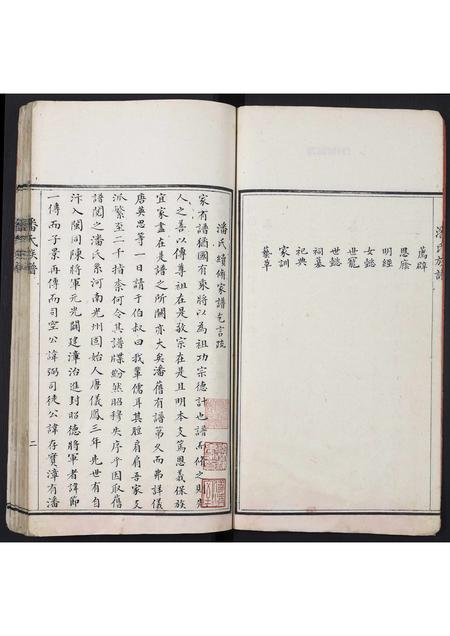 潘氏族譜
薦辟
恩廕
明經
女懿
世懿
世寵
祠墓
祀典
家訓
藝草
潘氏續脩家譜乞言疏
家有譜猶國有乘將以為祖功宗德計也譜而脩之則先
人之善以傳尊祖在是敬宗在是且明本支篤恩義保族
宜家盡在是譜之所關亦大矣潘舊有譜第久而弗詳儀
唐英思等一日請于伯叔曰我輩儒耳其腔肩肩吾家支
派繁至二千指柰何令其譜牒紛然昭穆失序乎因取舊
譜閱之潘氏系河南光州固始人唐儀鳳三年先世有自
汴入閩同陳將軍元光闢建漳治進封昭德將軍者諱節
一傳而子景再傳而司空公諱弼司徒公諱存實漳有潘
潘氏族譜
二